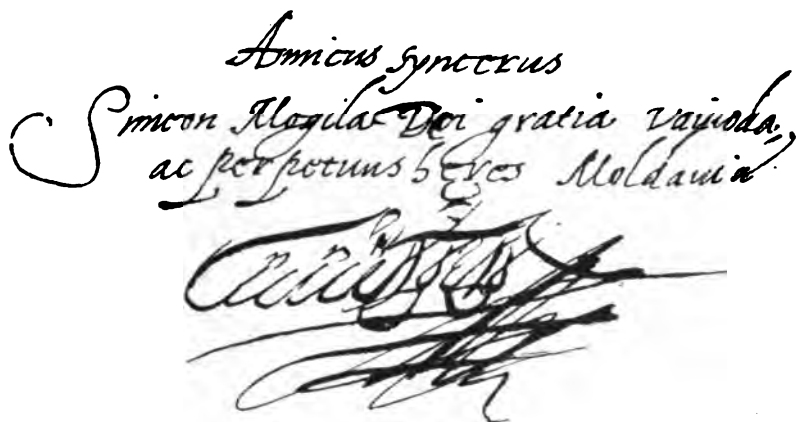 Amicus syncerus
Simeon Mogila Dei gratia Vaiuoda
ac perpetuus heres Moldauia